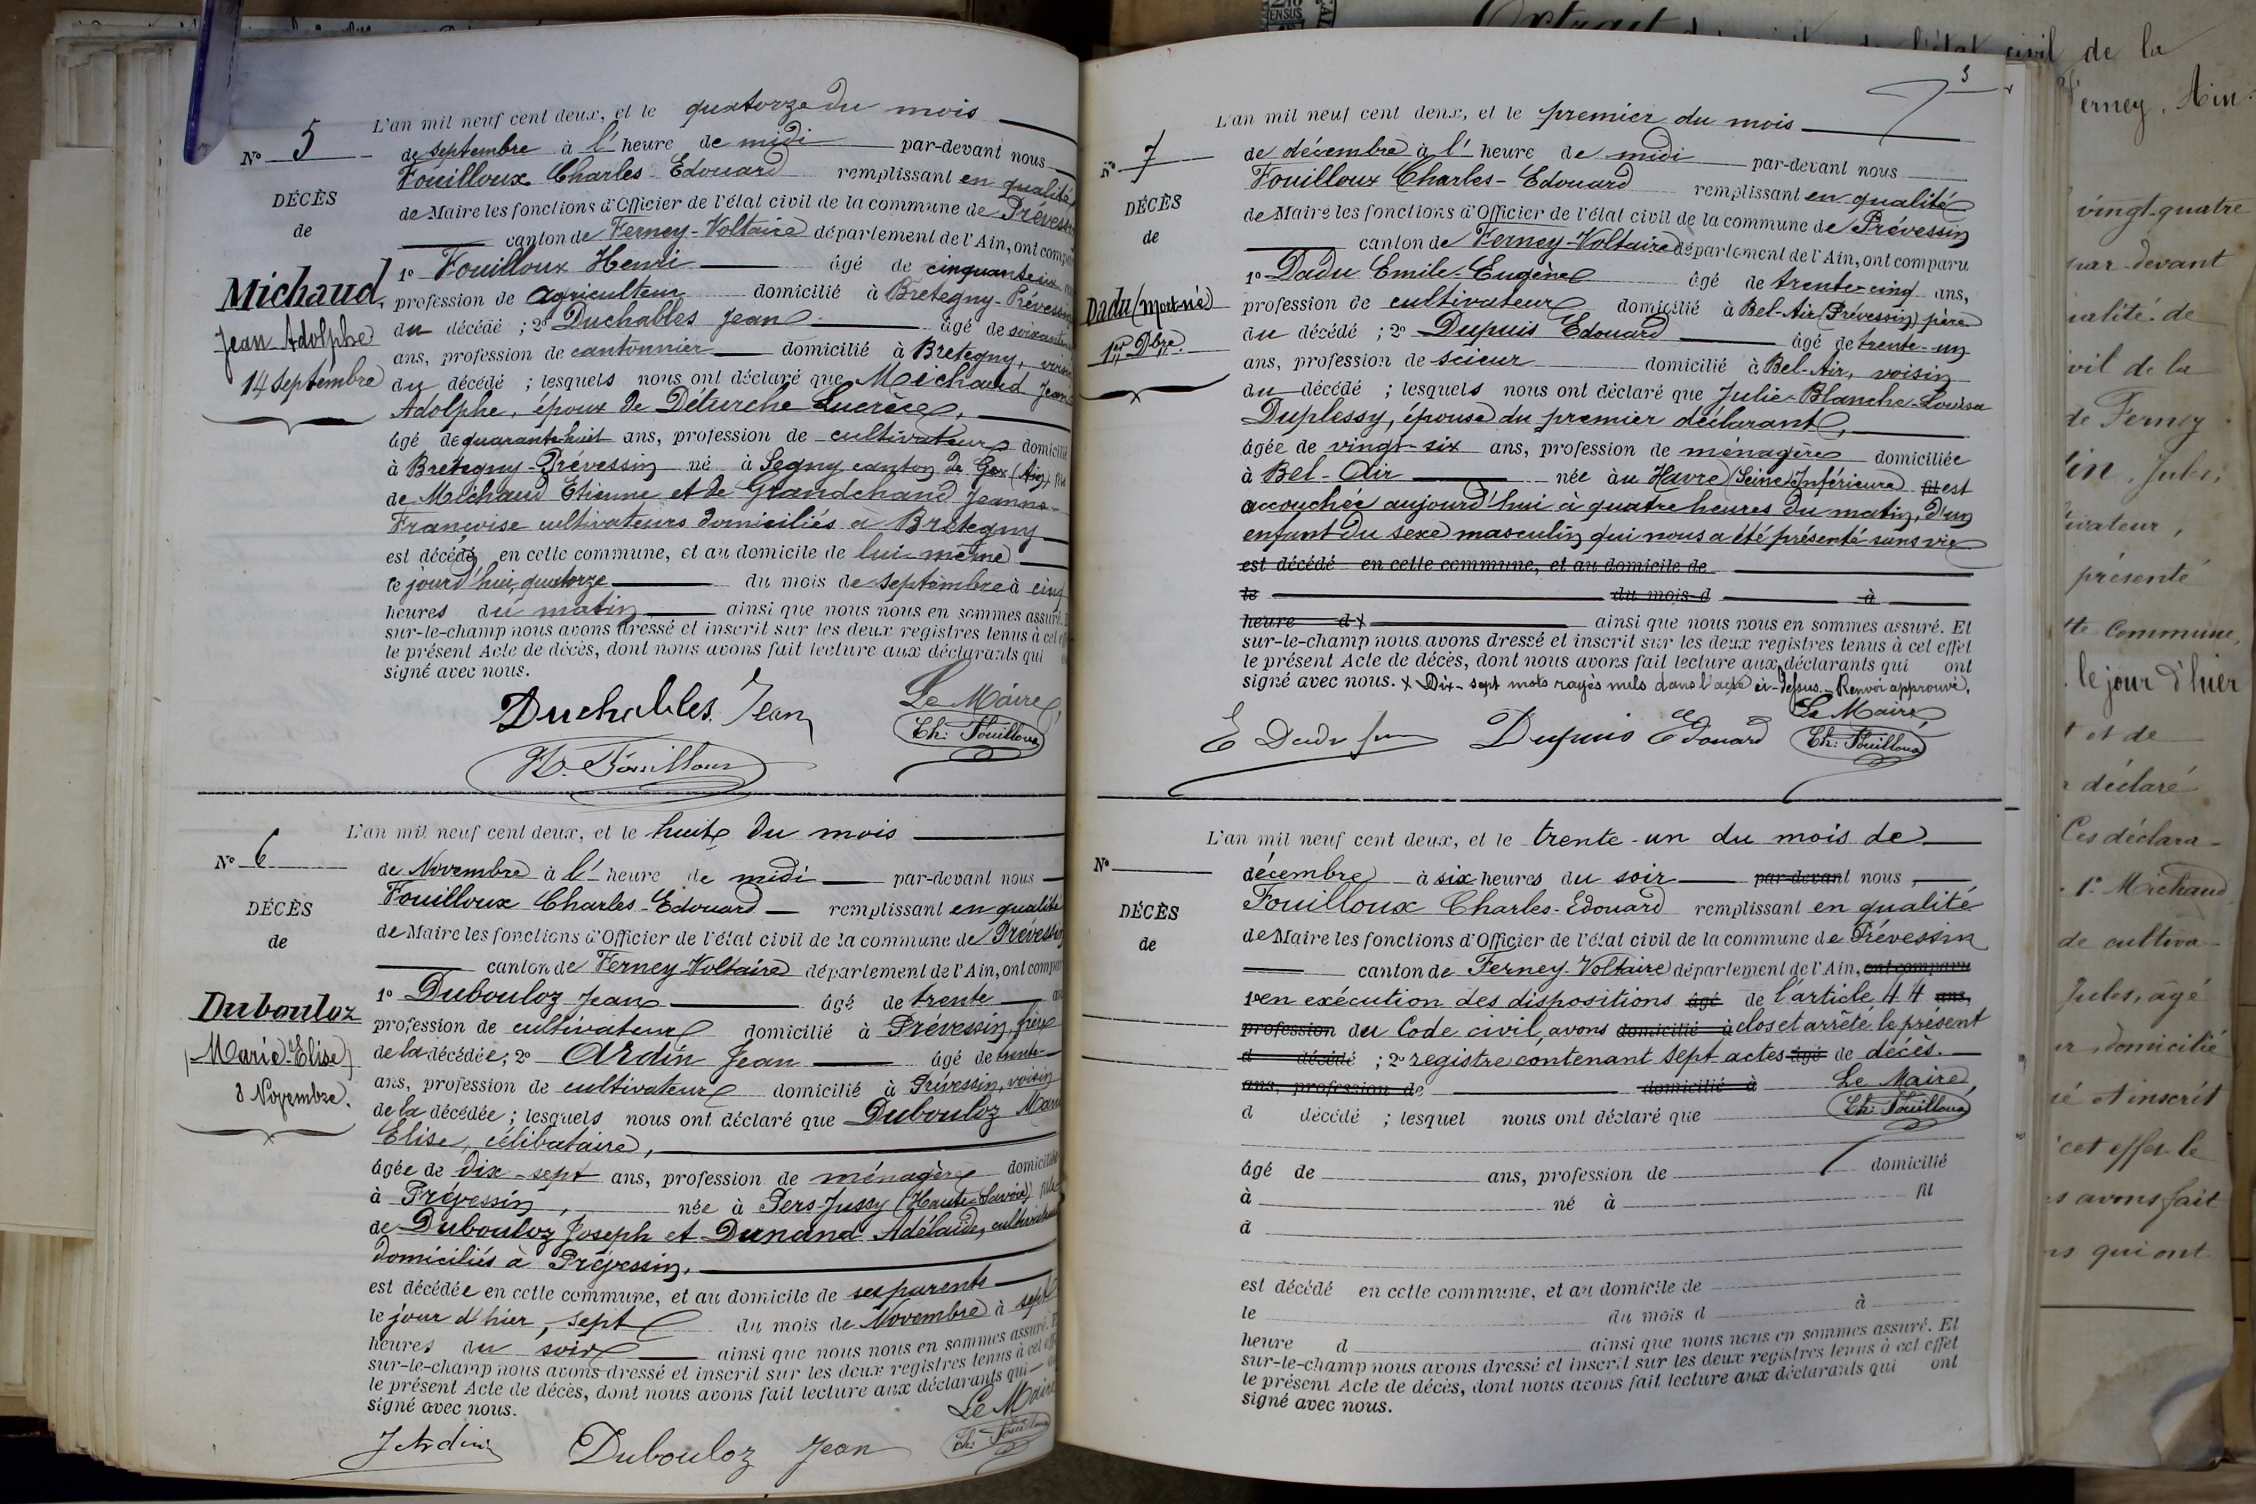 L'an mil neuf cent deux, et le quatorze du mois
N° 5
de septembre à l' heure de midi par-devant nous
Fouilloux Charles-Edouard remplissant en qualité
DÉCÈS
de Maire les fonctions d'Officier de l'état civil de la commune de Prévessin
de
canton de Ferney-Voltaire département de l'Ain, ont comparu
1° Fouilloux Henri âgé de cinquante
Michaud,
profession de agriculteur domicilié à Bretegny-Prévessin
Jean-Adolphe
du décédé ; 2° Duchables Jean âgé de soixante
ans, profession de cantonnier domicilié à Bretegny, voisin
14 Septembre
du décédé ; lesquels nous ont déclaré que Michaud Jean
Adolphe, époux de Déturche Lucrèce,
âgé de quarante-huit ans, profession de cultivateur domicilié
à Bretegny-Prévessin né à Segny, canton de Gex (Ain) fils
de Michaud Etienne et de Grandchand Jeanne-
Françoise cultivateurs domiciliés à Bretegny
est décédé en cette commune, et au domicile de lui-même
ce jourd'hui, quatorze du mois de septembre à cinq
heures du matin ainsi que nous nous en sommes assuré. Et
sur-le-champ nous avons dressé et inscrit sur les deux registres tenus à cet effet
le présent Acte de décès, dont nous avons fait lecture aux déclarants qui
signé avec nous.
Duchables Jean
Le Maire,
Ch: Fouilloux
H. Fouilloux
L'an mil neuf cent deux, et le huit du mois
N° 6
de Novembre à l' heure de midi par-devant nous
Fouilloux Charles-Edouard remplissant en qualité
DÉCÈS
de Maire les fonctions d'Officier de l'état civil de la commune de Prévessin
de
canton de Ferney-Voltaire département de l'Ain, ont comparu
1° Dubouloz Jean âgé de trente ans
Dubouloz
profession de cultivateur domicilié à Prévessin, frère
Marie-Elise
de la décédée; 2° Ardin Jean âgé de trente-
8 Novembre.
ans, profession de cultivateur domicilié à Prévessin, voisin
de la décédée ; lesquels nous ont déclaré que Dubouloz Marie
Elise, célibataire,
âgée de dix-sept ans, profession de ménagère domiciliée
à Prévessin, née à Pers-Jussy (Haute-Savoie) fille
de Dubouloz Joseph et Dunand Adélaïde, cultivateurs
domiciliés à Prévessin.
est décédée en cette commune, et au domicile de ses parents
le jour d'hier, sept du mois de Novembre à sept
heures du soir ainsi que nous nous en sommes assuré. Et
sur-le-champ nous avons dressé et inscrit sur les deux registres tenus à cet effet
le présent Acte de décès, dont nous avons fait lecture aux déclarants qui
signé avec nous.
Le Maire
J Ardin
Dubouloz Jean
Ch: Fouilloux
3
L'an mil neuf cent deux, et le premier du mois
N° 7
de décembre à l' heure de midi par-devant nous
Fouilloux Charles-Edouard remplissant en qualité
DÉCÈS
de Maire les fonctions d'Officier de l'état civil de la commune de Prévessin
de
canton de Ferney-Voltaire département de l'Ain, ont comparu
1° Dadu Emile-Eugène âgé de trente-cinq ans,
Dadu (mort-né)
profession de cultivateur domicilié à Bel-Air (Prévessin) père
1er Dbre.
du décédé ; 2° Dupuis Edouard âgé de trente-un
ans, profession de scieur domicilié à Bel-Air, voisin
du décédé ; lesquels nous ont déclaré que Julie-Blanche-Louisa
Duplessy, épouse du premier déclarant,
âgée de vingt-six ans, profession de ménagère domiciliée
à Bel-Air née au Havre (Seine-Inférieure) fil est
accouchée aujourd'hui à quatre heures du matin, d'un
enfant du sexe masculin qui nous a été présenté sans vie
est décédé en cette commune, et au domicile de
le du mois d à
heure d x ainsi que nous nous en sommes assuré. Et
sur-le-champ nous avons dressé et inscrit sur les deux registres tenus à cet effet
le présent Acte de décès, dont nous avons fait lecture aux déclarants qui ont
signé avec nous. x Dix-sept mots rayés nuls dans l'acte ci-dessus. Renvoi approuvé.
Le Maire,
E Dadu
Dupuis Edouard
Ch: Fouilloux
L'an mil neuf cent deux, et le trente-un du mois de
N°
décembre à six heures du soir par-devant nous,
Fouilloux Charles-Edouard remplissant en qualité
DÉCÈS
de Maire les fonctions d'Officier de l'état civil de la commune de Prévessin
de
canton de Ferney-Voltaire département de l'Ain, ont comparu
1° en exécution des dispositions âgé de l'article 44 ans,
profession du Code civil, avons domicilié à clos et arrêté le présent
d décédé ; 2° registre contenant sept actes âgé de décès.
ans, profession de domicilié à
Le Maire,
d décédé ; lesquel nous ont déclaré que
Ch: Fouilloux
âgé de ans, profession de domicilié
à né à fil
d
est décédé en cette commune, et au domicile de
le du mois d à
heure d ainsi que nous nous en sommes assuré. Et
sur-le-champ nous avons dressé et inscrit sur les deux registres tenus à cet effet
le présent Acte de décès, dont nous avons fait lecture aux déclarants qui ont
signé avec nous.
Extrait
civil de la
Ferney, Ain
vingt-quatre
par-devant
qualité de
civil de la
de Ferney
présenté
commune,
le jour d'hier
et de
déclaré
Ces déclara-
1° Michaud
de cultiva-
Jules, âgé
domicilié
et inscrit
cet effet le
avons fait
qui ont